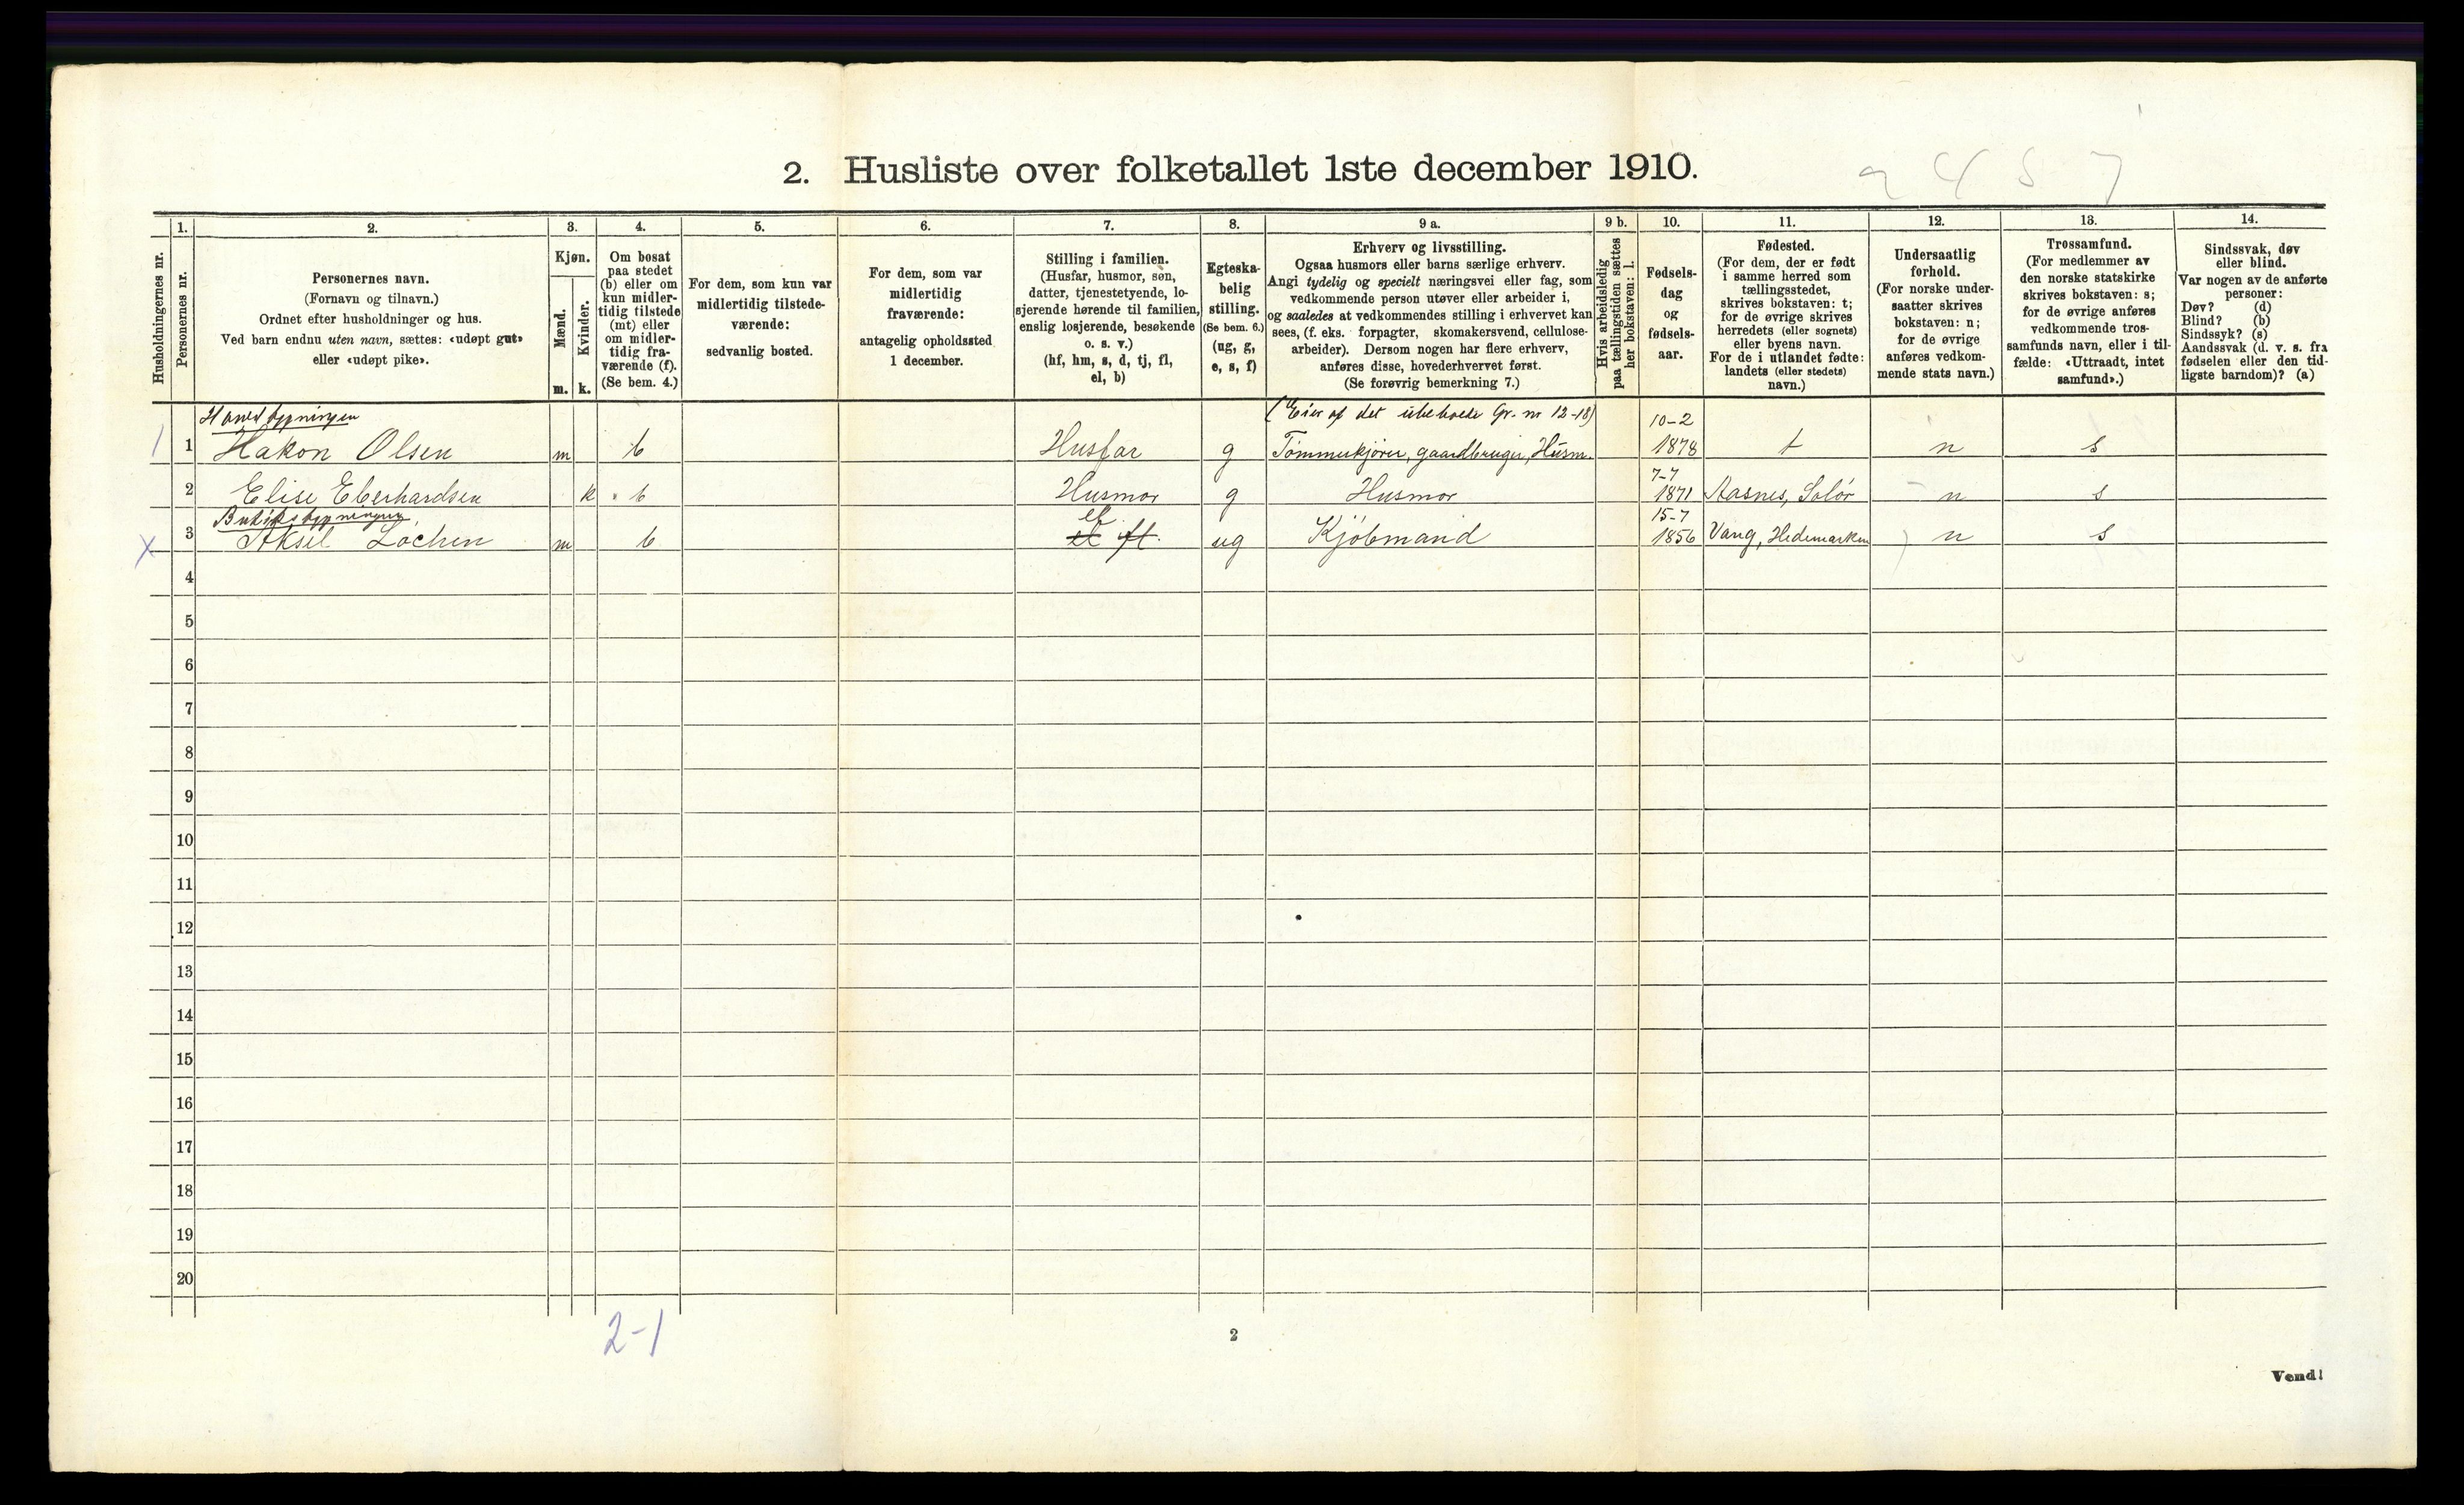 2. Husliste over folketallet 1ste december 1910.
1. 2. 3. 4. 5. 6. 7. 8. 9 a. 9 b. 10. 11. 12. 13. 14.
Husholdningernes nr.
Personernes nr.
Personernes navn.
(Fornavn og tilnavn.)
Ordnet efter husholdninger og hus.
Ved barn endnu uten navn, sættes: «udøpt gut»
eller «udøpt pike».
Kjøn.
Mænd.
m.
Kvinder.
k.
Om bosat
paa stedet
(b) eller om
kun midler-
tidig tilstede
(mt) eller
om midler-
tidig fra-
værende (f).
(Se bem. 4.)
For dem, som kun var
midlertidig tilstede-
værende:
sedvanlig bosted.
For dem, som var
midlertidig
fraværende:
antagelig opholdssted
1 december.
Stilling i familien.
(Husfar, husmor, søn,
datter, tjenestetyende, lo-
sjerende hørende til familien,
enslig losjerende, besøkende
o. s. v.)
(hf, hm, s, d, tj, fl,
el, b)
Egteska-
belig
stilling.
(Se bem. 6.)
(ug, g,
e, s, f)
Erhverv og livsstilling.
Ogsaa husmors eller barns særlige erhverv.
Angi tydelig og specielt næringsvei eller fag, som
vedkommende person utøver eller arbeider i,
og saaledes at vedkommendes stilling i erhvervet kan
sees, (f. eks. forpagter, skomakersvend, cellulose-
arbeider). Dersom nogen har flere erhverv,
anføres disse, hovederhvervet først.
(Se forøvrig bemerkning 7.)
Hvis arbeidsledig
paa tællingstiden sættes
her bokstaven: l.
Fødsels-
dag
og
fødsels-
aar.
Fødested.
(For dem, der er født
i samme herred som
tællingsstedet,
skrives bokstaven: t;
for de øvrige skrives
herredets (eller sognets)
eller byens navn.
For de i utlandet fødte:
landets (eller stedets)
navn.)
Undersaatlig
forhold.
(For norske under-
saatter skrives
bokstaven: n;
for de øvrige
anføres vedkom-
mende stats navn.)
Trossamfund.
(For medlemmer av
den norske statskirke
skrives bokstaven: s;
for de øvrige anføres
vedkommende tros-
samfunds navn, eller i til-
fælde: «Uttraadt, intet
samfund».)
Sindssvak, døv
eller blind.
Var nogen av de anførte
personer:
Døv? (d)
Blind? (b)
Sindssyk? (s)
Aandssvak (d. v. s. fra
fødselen eller den tid-
ligste barndom)? (a)
Hovedbygningen (Eier af det ubeboede Gr. nr 12-18) 10-2
1 1 Hakon Olsen m b Husfar g Tømmerkjører, gaardbruger, Husm. 1878 t n s
7-7
2 Elise Eberhardsen k b Husmor g Husmor 1871 Aasnes, Solør n s
Butiksbygningen el 15-7
x 3 Aksel Lochen m b el fl. ug Kjøbmand 1856 Vang, Hedemarken n s
4
5
6
7
8
9
10
11
12
13
14
15
16
17
18
19
20
2-1
2
Vend!